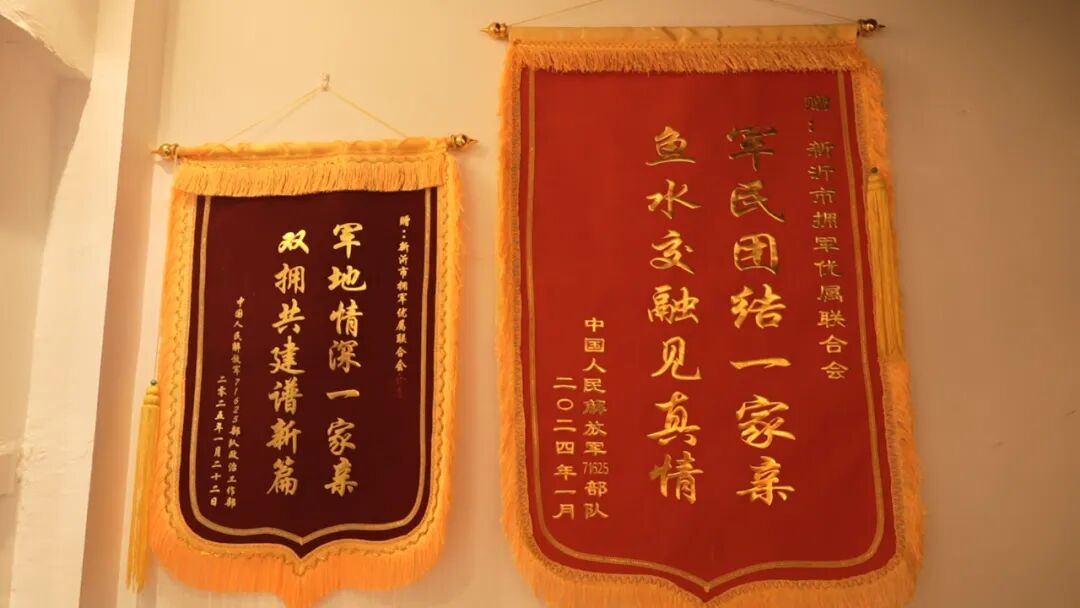 赠：新沂市拥军优属联合会
军地情深一家亲
双拥共建谱新篇
中国人民解放军71625部队政治工作部
二零二五年一月二十二日
赠：新沂市拥军优属联合会
军民团结一家亲
鱼水交融见真情
中国人民解放军71625部队
二〇二四年一月